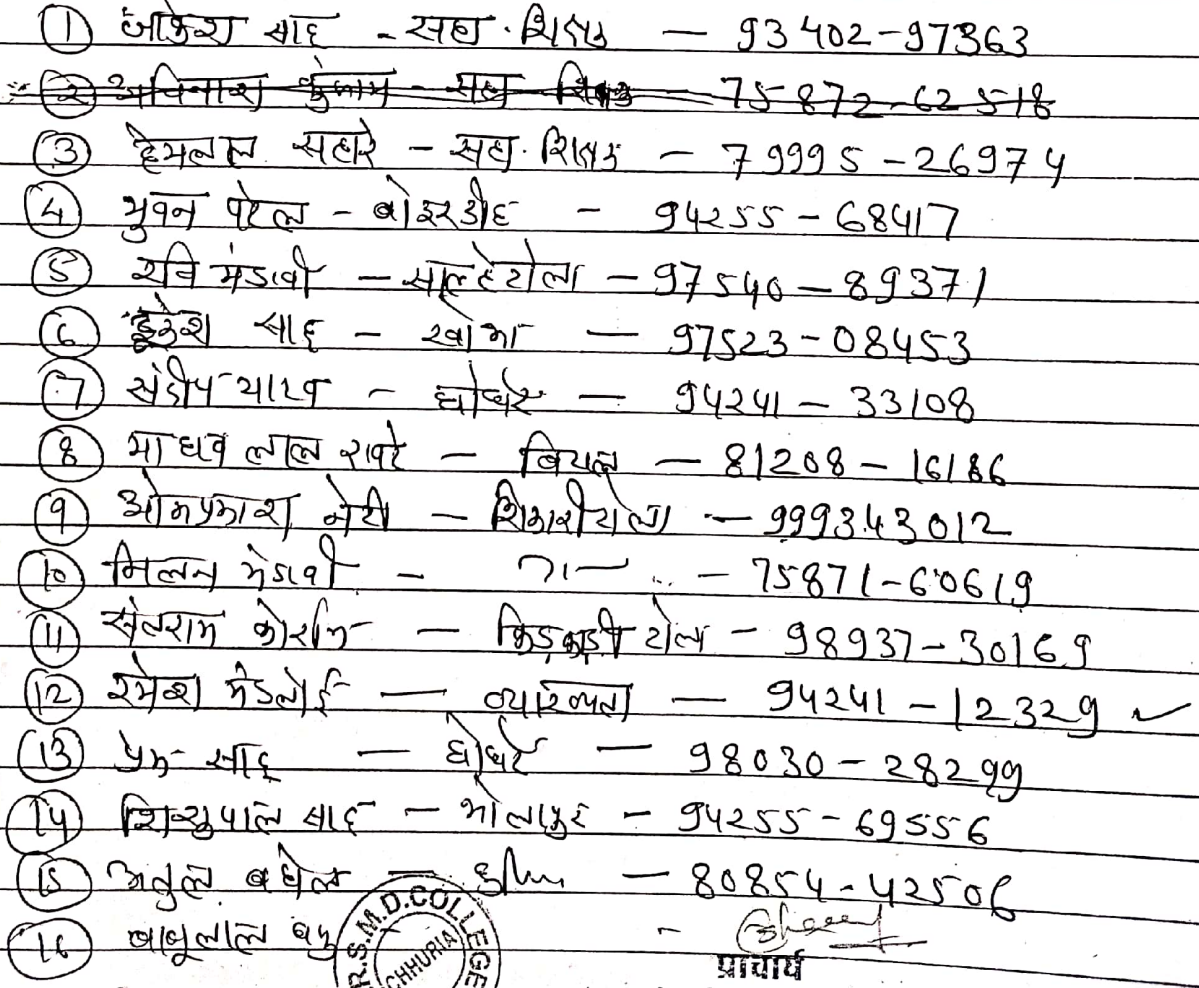 ① जाकेश साहू - सहा. शिक्षक — 93402-97363
② अविनाश कुंजाम - सहा शिक्षक - 75872-62518
③ हेमलाल सहारे - सहा. शिक्षक - 79995-26974
④ भुवन पटेल - बोइरडीह - 94255-68417
⑤ रवि मंडावी - साल्हेटोला - 97540-89371
⑥ साहू - खोभा - 97523-08453
⑦ संदीप यादव - घोघरे - 94241-33108
⑧ माधव लाल रावटे - - 81208-16186
⑨ ओमप्रकाश नेटी - शिकारीटोला - 999343012
⑩ मिलन मंडावी - - 75871-60619
⑪ संतराम - किड़काड़ी टोला - 98937-30169
⑫ रमेश - व्याख्याता - 94241-12329 ✓
⑬ प्रेम साहू - घोघरे - 98030-28299
⑭ शिशुपाल साहू - भोलापुर - 94255-69556
⑮ अतुल बघेल - - 80854-42506
⑯ बाबूलाल -
R.S.M.D.COLLEGE
CHHURIA
प्राचार्य